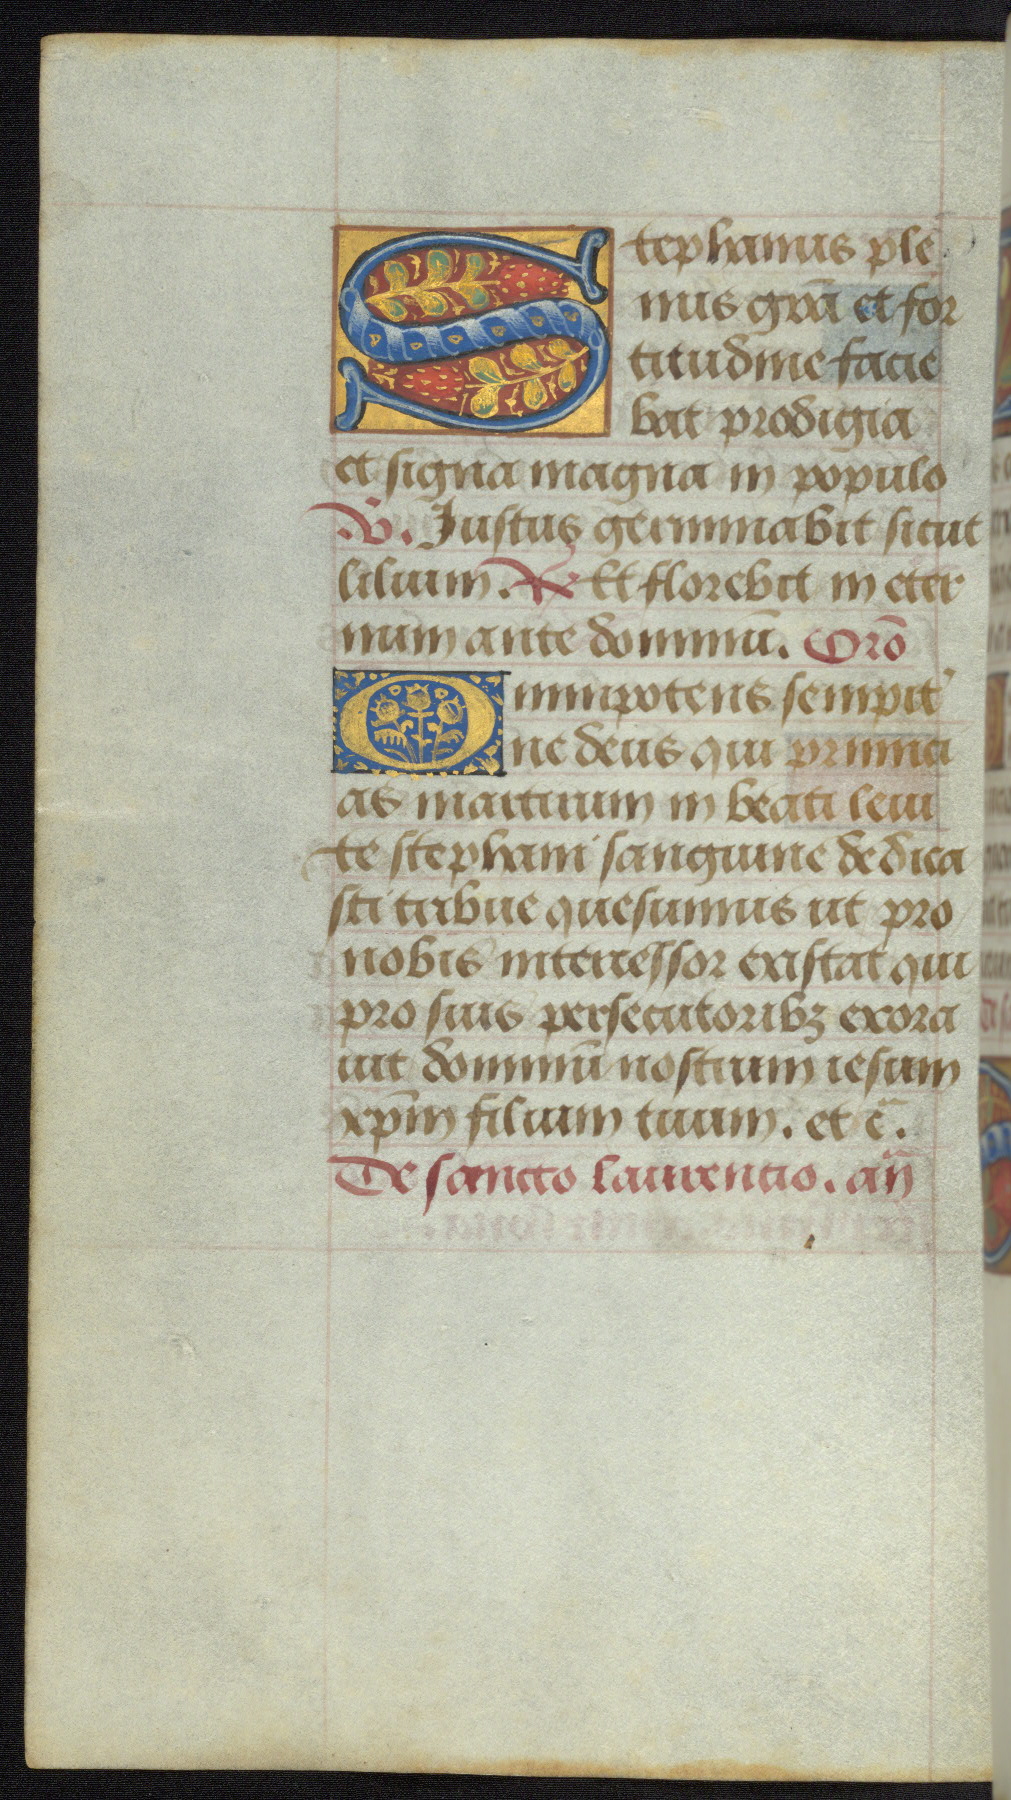 Stephanus ple
nus grā et for
titudine facie
bat prodigia
et signa magna in populo
℣. Justus germinabit sicut
lilium. ℟ Et florebit in eter
num ante dominū. Orō
Omnipotens sempit'
ne deus qui primici
as martirum in beati leui
te stephani sanguine dedica
sti tribue quesumus ut pro
nobis intercessor existat qui
pro suis persecutoribꝫ exora
uit dominū nostrum iesum
xp̄m filium tuum. et c̄.
De sancto laurentio. an̄